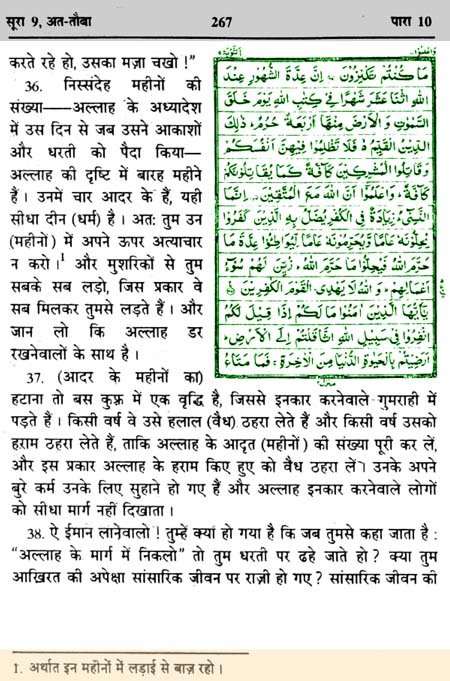 सूरा 9, अत-तौबा 267 पारा 10
करते रहे हो, उसका मज़ा चखो !"
36. निस्संदेह महीनों की
संख्या——अल्लाह के अध्यादेश
में उस दिन से जब उसने आकाशों
और धरती को पैदा किया—
अल्लाह की दृष्टि में बारह महीने
हैं । उनमें चार आदर के हैं, यही
सीधा दीन (धर्म) है । अतः तुम उन
(महीनों) में अपने ऊपर अत्याचार
न करो ।¹ और मुशरिकों से तुम
सबके सब लड़ो, जिस प्रकार वे
सब मिलकर तुमसे लड़ते हैं । और
जान लो कि अल्लाह डर
रखनेवालों के साथ है ।
وَاعْلَمُوْٓا ١٠ التَّوْبَة ٩
مَا كُنْتُمْ تَكْنِزُوْنَ ۞ اِنَّ عِدَّةَ الشُّهُوْرِ عِنْدَ
اللهِ اثْنَا عَشَرَ شَهْرًا فِيْ كِتٰبِ اللهِ يَوْمَ خَلَقَ
السَّمٰوٰتِ وَالْاَرْضَ مِنْهَآ اَرْبَعَةٌ حُرُمٌ ؕ ذٰلِكَ
الدِّيْنُ الْقَيِّمُ ۙ فَلَا تَظْلِمُوْا فِيْهِنَّ اَنْفُسَكُمْ
وَقَاتِلُوا الْمُشْرِكِيْنَ كَآفَّةً كَمَا يُقَاتِلُوْنَكُمْ
كَآفَّةً ؕ وَاعْلَمُوْٓا اَنَّ اللهَ مَعَ الْمُتَّقِيْنَ ۞ اِنَّمَا
النَّسِيْٓءُ زِيَادَةٌ فِي الْكُفْرِ يُضَلُّ بِهِ الَّذِيْنَ كَفَرُوْا
يُحِلُّوْنَهٗ عَامًا وَّيُحَرِّمُوْنَهٗ عَامًا لِّيُوَاطِـُٔوْا عِدَّةَ مَا
حَرَّمَ اللهُ فَيُحِلُّوْا مَا حَرَّمَ اللهُ ؕ زُيِّنَ لَهُمْ سُوْٓءُ
اَعْمَالِهِمْ ؕ وَاللهُ لَا يَهْدِى الْقَوْمَ الْكٰفِرِيْنَ ۞
يٰٓاَيُّهَا الَّذِيْنَ اٰمَنُوْا مَا لَكُمْ اِذَا قِيْلَ لَكُمُ
انْفِرُوْا فِيْ سَبِيْلِ اللهِ اثَّاقَلْتُمْ اِلَى الْاَرْضِ ؕ
اَرَضِيْتُمْ بِالْحَيٰوةِ الدُّنْيَا مِنَ الْاٰخِرَةِ ۚ فَمَا مَتَاعُ
37. (आदर के महीनों का)
हटाना तो बस कुफ़्र में एक वृद्धि है, जिससे इनकार करनेवाले गुमराही में
पड़ते हैं । किसी वर्ष वे उसे हलाल (वैध) ठहरा लेते हैं और किसी वर्ष उसको
हराम ठहरा लेते हैं, ताकि अल्लाह के आदृत (महीनों) की संख्या पूरी कर लें,
और इस प्रकार अल्लाह के हराम किए हुए को वैध ठहरा लें । उनके अपने
बुरे कर्म उनके लिए सुहाने हो गए हैं और अल्लाह इनकार करनेवाले लोगों
को सीधा मार्ग नहीं दिखाता ।
38. ऐ ईमान लानेवालो ! तुम्हें क्या हो गया है कि जब तुमसे कहा जाता है :
"अल्लाह के मार्ग में निकलो" तो तुम धरती पर ढहे जाते हो ? क्या तुम
आख़िरत की अपेक्षा सांसारिक जीवन पर राज़ी हो गए ? सांसारिक जीवन की
1. अर्थात इन महीनों में लड़ाई से बाज़ रहो ।